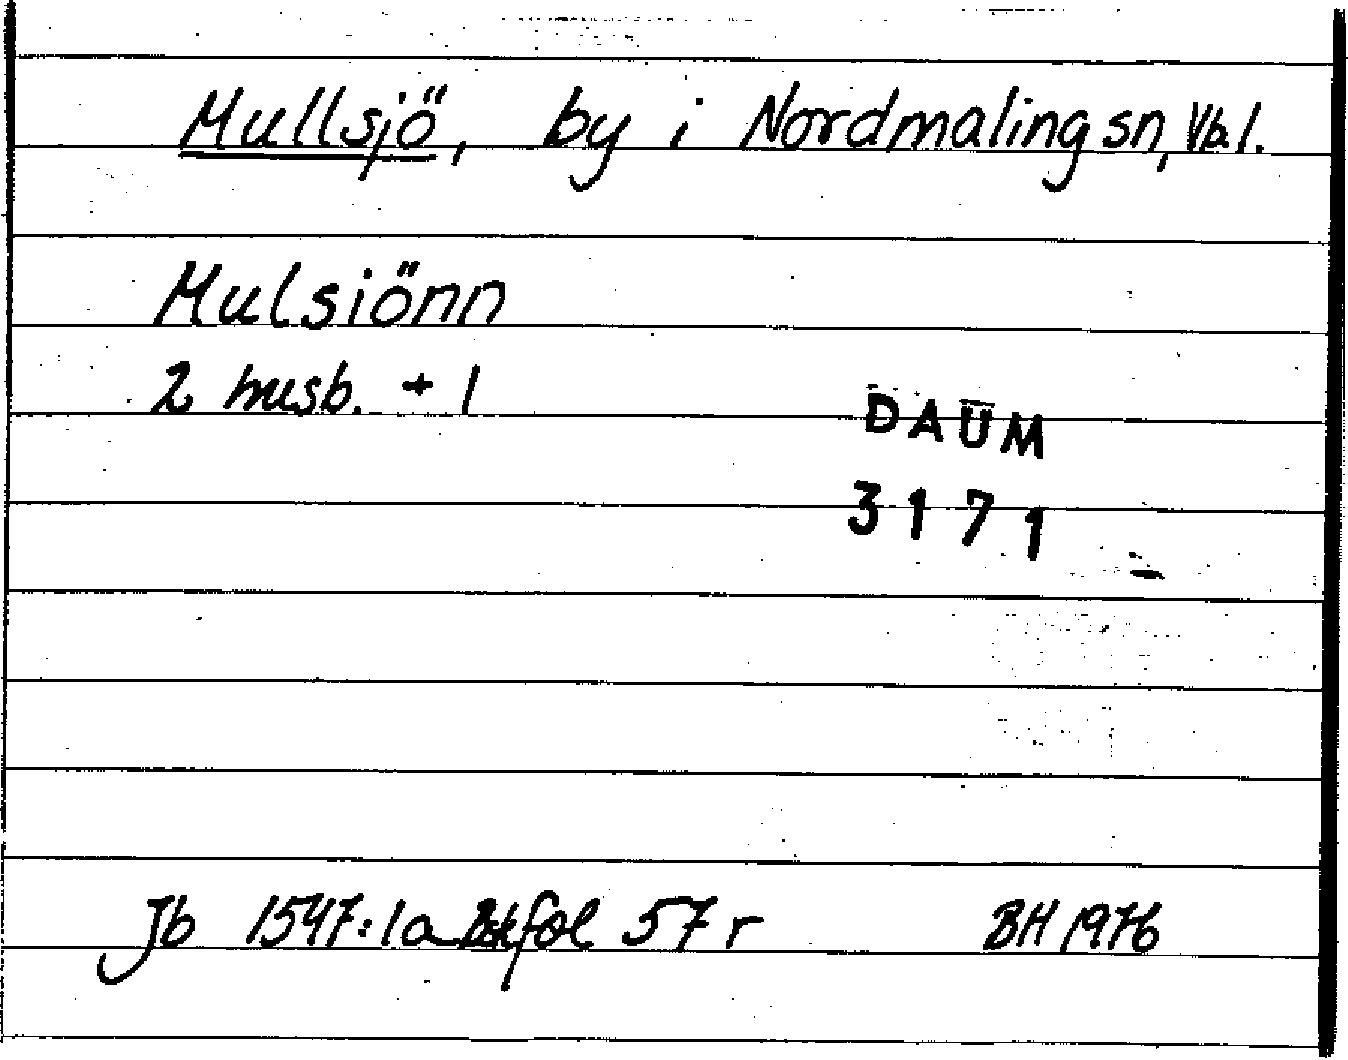 Mullsjö, by i Nordmaling sn, Vb l.
Mulsiönn
2 husb. + 1
DAUM
3171
Jb 1547:1a Bskfol 57 r BH 1976